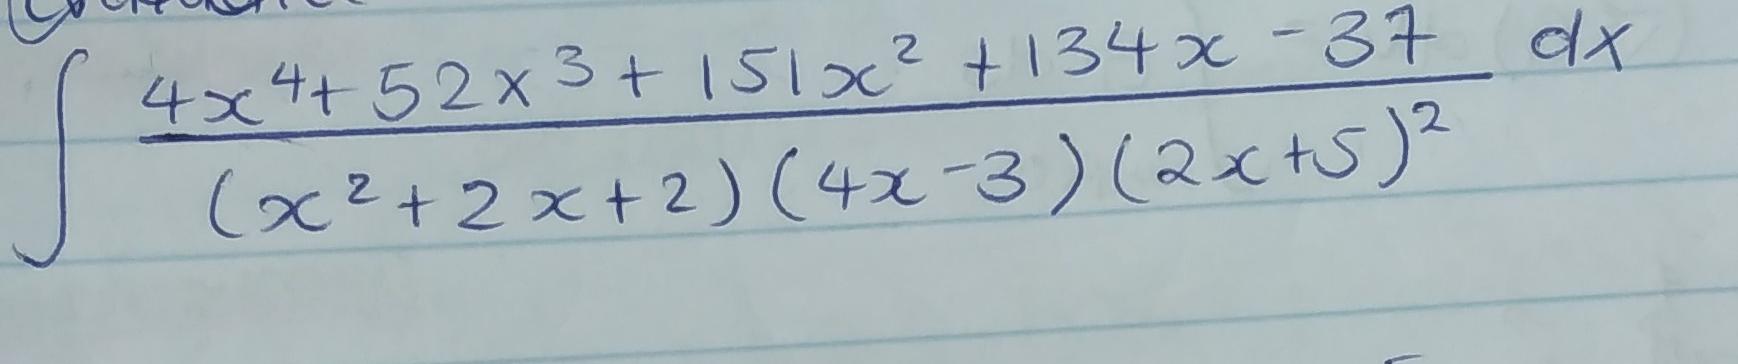 ∫ (4x⁴ + 52x³ + 151x² + 134x - 37) / ((x² + 2x + 2)(4x - 3)(2x + 5)²) dx